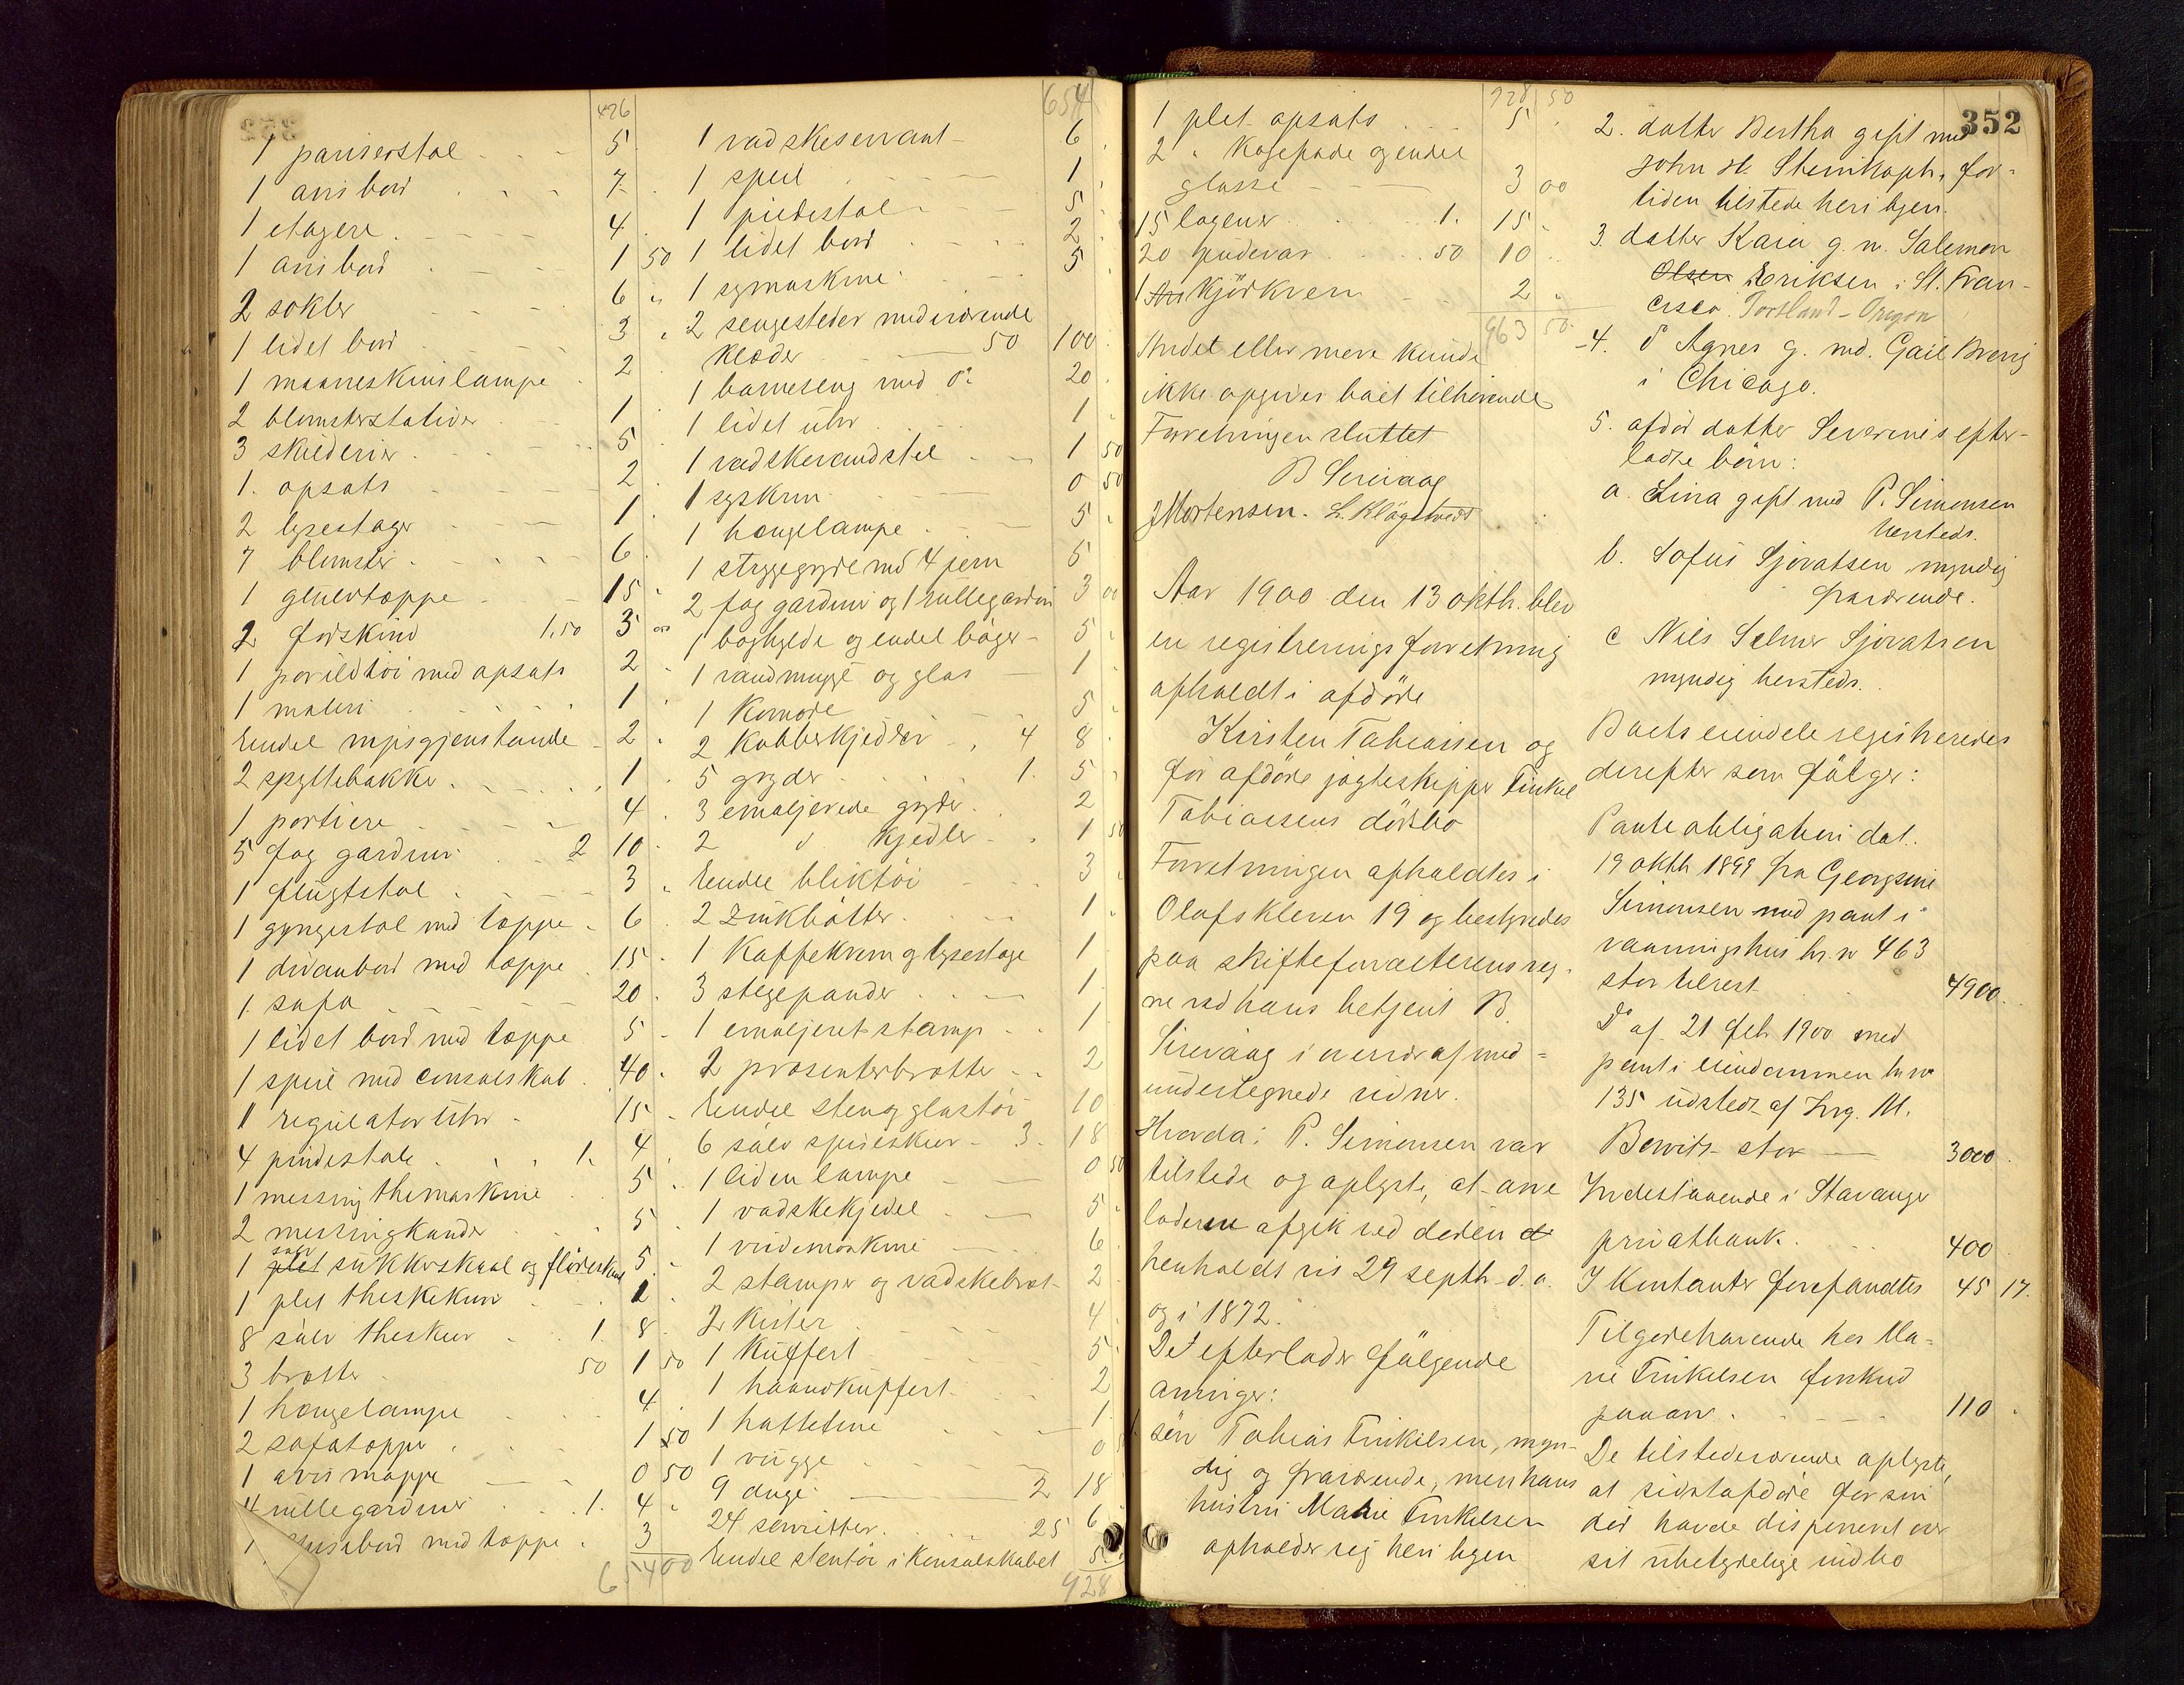 426
1 pariserstol 5
1 avisbord 7
1 etagere 4
1 avisbord 1 50
2 sokler 6
1 lidet bord 3
1 maaneskinslampe 2
2 blomsterstativer 1
3 skilderier 5
1 opsats 2
2 lysestager 1
7 blomster 6
1 gulvtæppe 15
2 forskind 1.50 3 00
1 povildtøi med opsats 2
1 maleri 1
Endel nipsgjenstande 2
2 spyttebakke 1
1 portiere 4
5 fag gardiner 2 10
1 flugtstol 3
1 gyngestol med tæppe 6
1 divanbord med tæppe 15
1 sofa 20
1 lidet bord med tæppe 5
1 speil med consolskab 40
1 regulator uhr 15
4 pindestole 1. 4
1 messing themaskine 5
2 messingkander 5
sølv
1 plet sukkerskaal og flødeskaal 5
1 plet theskekurv 2
8 sølv theskeer 1. 8
3 bratter 50 1 50
1 hængelampe 4
2 sofatæpper 1 50
1 avismappe 0 50
4 rullegardiner 1. 4
med tæppe 3
654 00
654
1 vadskeservant 6
1 speil 1
1 piedestal 5
1 lidet bord 2
1 symaskine 5
2 sengesteder med iværende
klæder 50 100
1 barneseng med do 20
1 lidet uhr 1
1 vadskevandstel 1 50
1 syskrin 0 50
1 hængelampe 5
1 strygegryde med 4 jern 5
2 fag gardiner og 1 rullegardin 3 00
1 boghylde og endel bøger 5
1 vandmugge og glas 1
1 Komode 5
2 Kobberkjedler 4 8
5 gryder 1. 5
3 emaljerede gryder 2
2 d kjedler 1 50
Endel bliktøi 3
2 Zinkbøtter 1
1 Kaffekvern og lysestage 1
3 stegepander 1
1 emaljeret stamp 1
2 præsenterbratter 2
Endel sten og glastøi 10
6 sølv spiseskeer 3. 18
1 liden lampe 0 50
1 vadskekjedel 5
1 vridemaskine 6
2 stamper og vadskebræt 2
2 Kister 4
1 Kuffert 5
1 haandkuffert 2
1 hatteteine 1
1 vugge 0 50
9 duge 2 18
24 servietter 25 6
Endel stentøi i Konsolskabet 5
928
928 50
1 plet opsats 5
2 " Kagefade og endel
glasse 3 00
15 lagener 1. 15
20 pudevar 50 10
1 Kjødkvern 2
963 50
Andet eller mere kunde
ikke opgives boet tilhørende
Forretningen sluttet
B Sirevaag
J Mortensen. L. Kløgetvedt
Aar 1900 den 13 oktbr. blev
en registreringsforretning
afholdt i afdøde
Kirsten Tobiassen og
før afdøde jagteskipper Tinkel
Tobiassens dødsbo
Forretningen afholdtes i
Olafskleven 19 og bestyredes
paa skifteforvalterens veg-
ne ved hans betjent B.
Sirevaag i overvær af med-
undertegnede vidner.
Hvorda: P. Simonsen var
tilstede og oplyste, at arve
laderne afgik ved døden
henholdsvis 29 septbr d.a.
og i 1872.
De efterlader følgende
arvinger:
søn Tobias Tinkelsen, myn-
dig og fraværende, men hans
hustru Malie Tinkelsen
opholder sig her i byen
352
2. datter Bertha gift med
John H. Steinkoph, for-
tiden tilstede her i byen.
3. datter Kaia g. m. Salemon
Olsen Eriksen i St. Fran-
cisco. Portland - Oregon
4. d Agnes g. md. Gail
i Chicago.
5. afdød datter Severines efter-
ladte børn:
a. Lina gift med P. Simonsen
hersteds.
b. Sofus Sjovatsen myndig
fraværende.
c Nils Selmer Sjovatsen
myndig hersteds.
Boets eiendele registreredes
derefter som følger:
Panteobligation dat.
19 oktbr 1899 fra Georgsine
Simonsen med pant i
vaaningshus br. no 463
stor tilrest 4900
Do af 21 feb 1900 med
pant i eiendommen br no
135 udstedt af Ing. M.
Bowitz stor 3000
Indestaaende i Stavanger
privatbank 400
I Kontanter forefandtes 45 17.
Tilgodehavende hos Ma-
rie Tinkelsen forskud
paa arv 110
De tilstedeværende oplyste,
at sidstafdøde før sin
død havde disponeret over
sit ubetydelige indbo